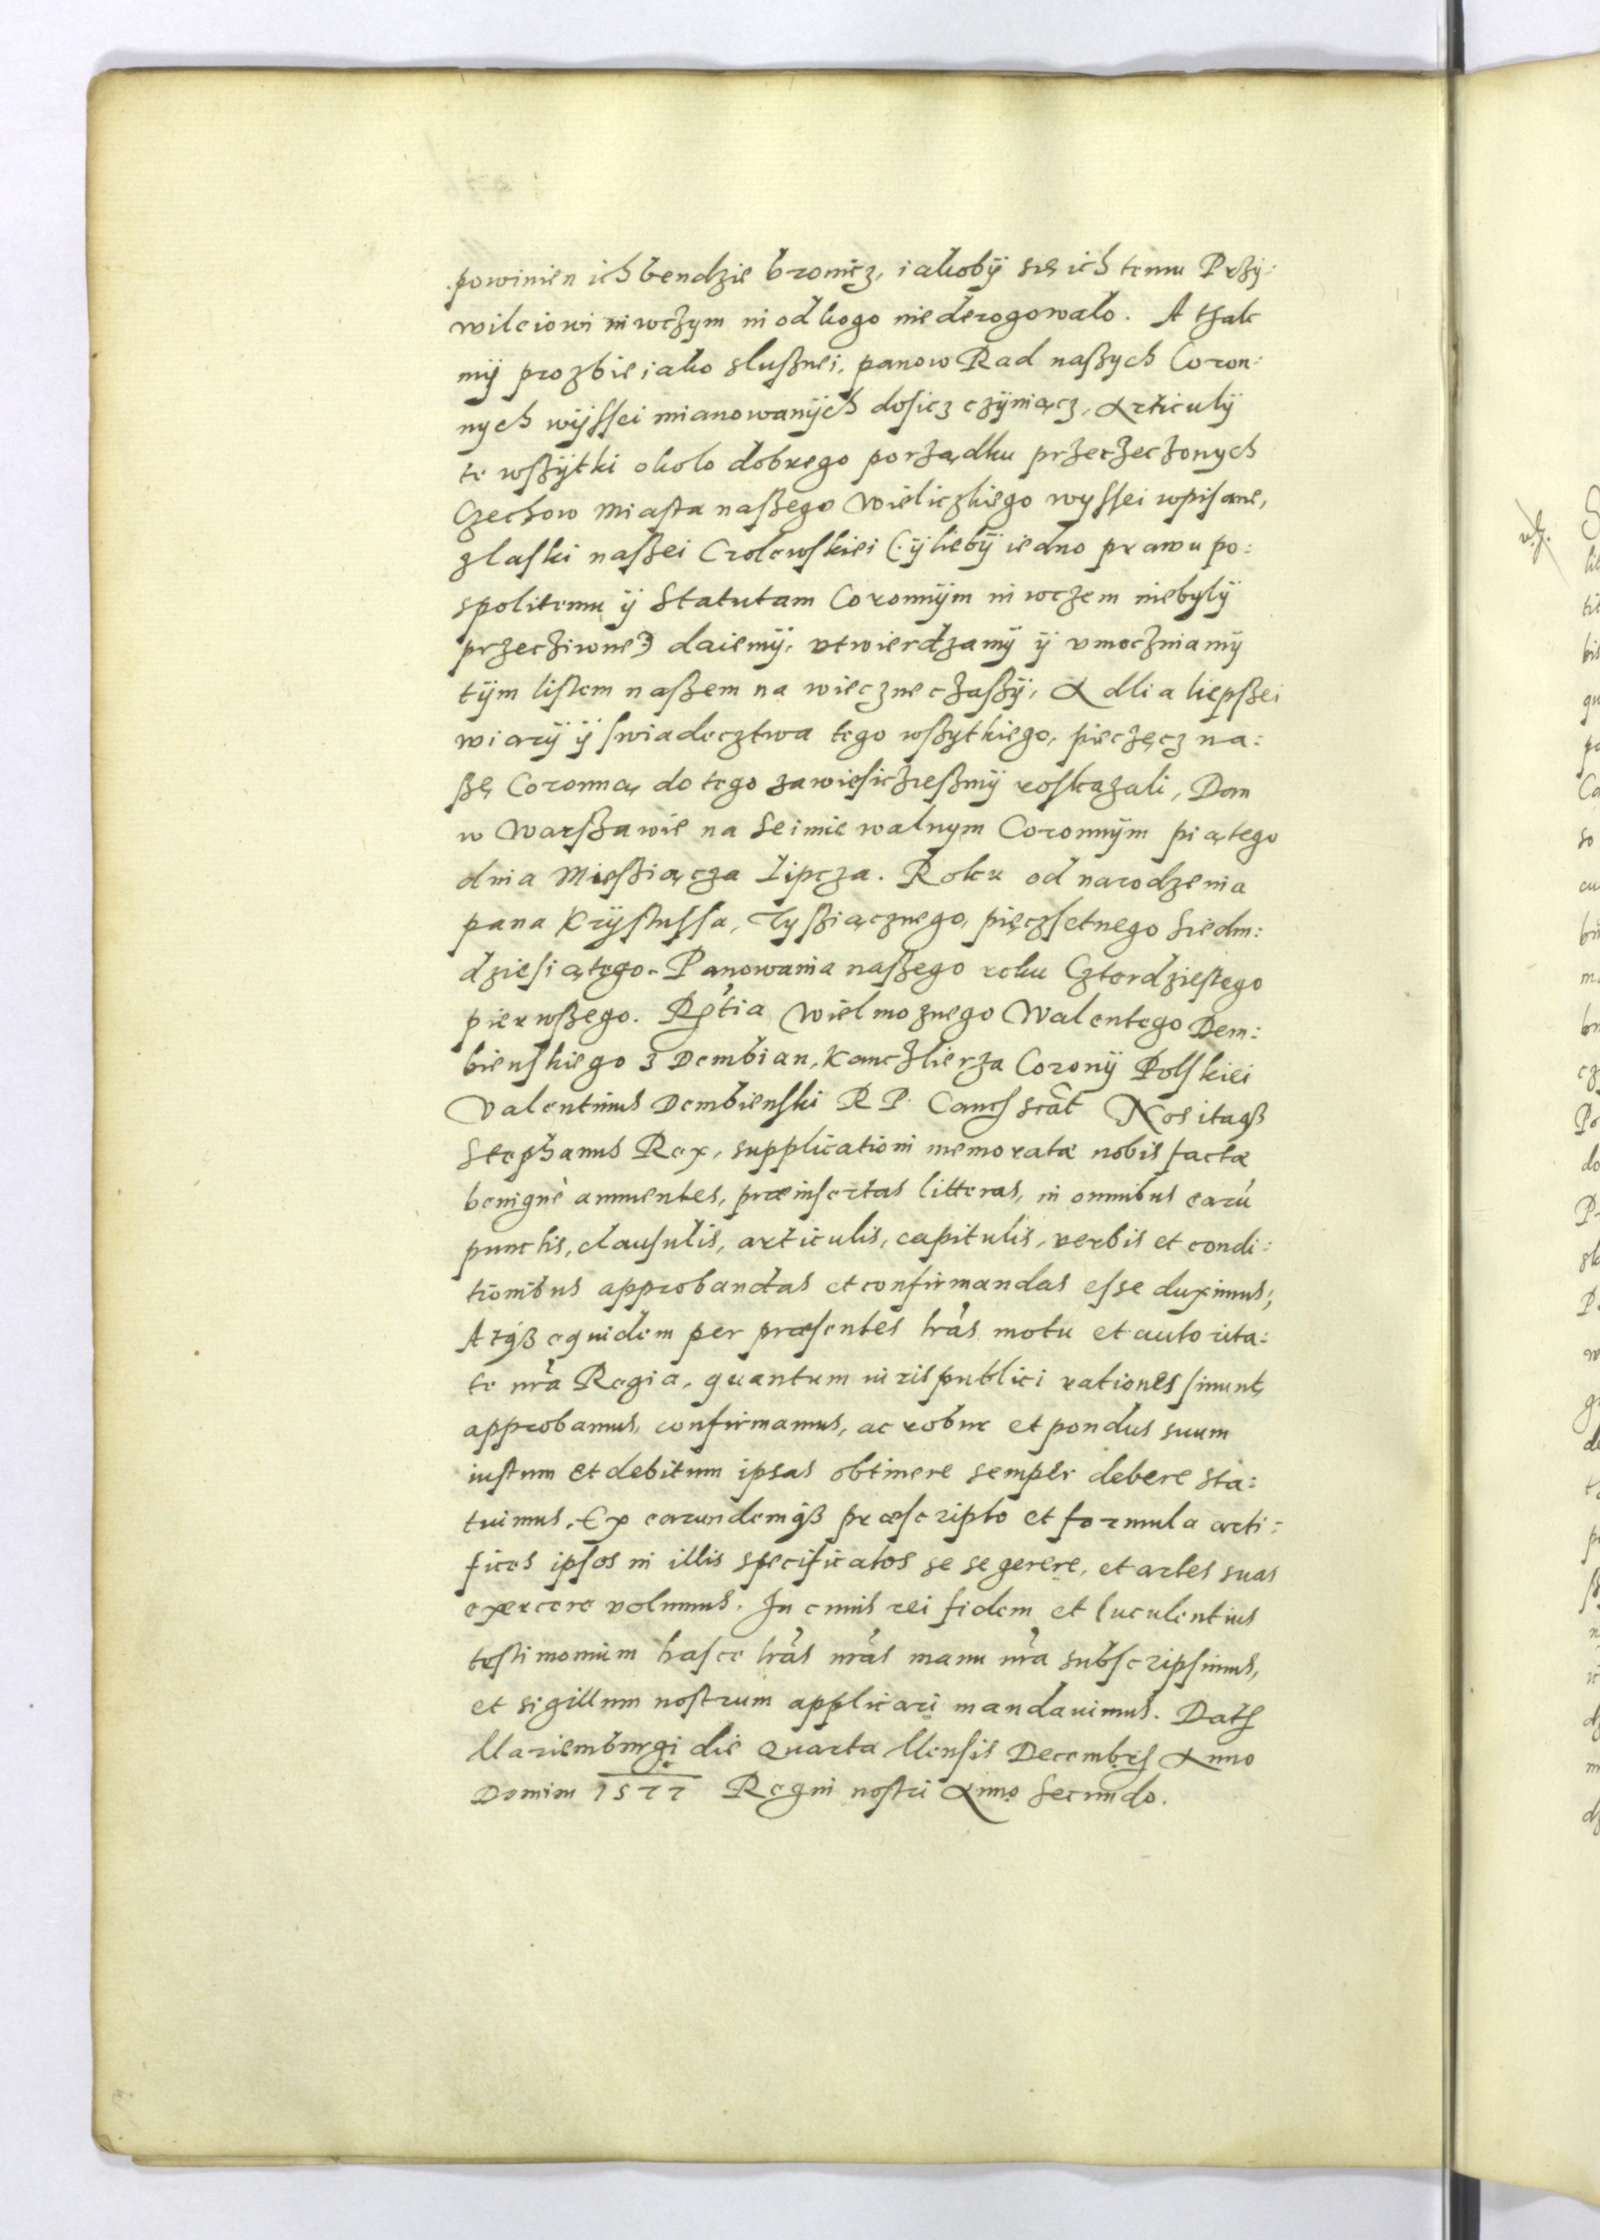 powinien ich bendzie bronicz, iakobÿ się ich temu Przÿ:
wileiowi niwczym ni od kogo niederogowało. A thak
mÿ prozbie iako sluſznei, panow Rad naſzych Coron:
nych wÿſſei mianowanÿch dosicz czÿniącz, Articulÿ
te wſzÿtki okolo dobrego porządku przerzeczonych
Czechow Miaſta naſzego Wieliczkiego wyſſei wpiſane,
z laſki naſzei Crolewskiei (: ÿ lieby iedno prawu po:
spolitemu ÿ Statutam Coronnÿm ni wczem niebylÿ
przecziwne) daiemÿ, vtwierdzamÿ ÿ vmoczniamÿ
tÿm liſtem naſzem na wieczne czaſzÿ, A dlia liepſzei
wiarÿ ÿ ſwiadecztwa tego wſzytkiego, pieczęcz na:
ſzę Coronną, do tego zawieſicżieſzmÿ roſkazali, Dan
w Warſzawie na Seimie walnym Coronnÿm piątego
dnia Mieſziącza Lipcza. Roku od narodzenia
pana Krÿſtuſſa, Tyſziącznego, pięczſetnego Siedm:
dzieſiątego. Panowania naſzego roku Czterdzieſtego
pierwſzego. Rtia Wielmoznego Walentego Dem:
bienſkiego z Dembian, Kanczlierza Coronÿ Polſkiei
Valentinus Dembienſki R P. Canc scat Nos itaqz
Stephanus Rex, supplicationi memoratæ nobis factæ
benignè annuentes, præinſertas litteras, in omnibus earu
punctis, clauſulis, articulis, capitulis, verbis et condi:
tionibus approbandas et confirmandas eſse duximus,
Atqz equidem per præſentes lras motu et autorita:
te nra Regia, quantum iuris publici rationes ſinunt,
approbamus, confirmamus, ac robur et pondus suum
iuſtum et debitum ipsas obtinere semper debere sta:
tuimus. Ex earundemqz præſcripto et formula arti:
fices ipſos in illis specificatos se se gerere, et artes suas
exercere volumus. In cuius rei fidem et luculentius
teſtimonium haſce lras nras manu nra subſcripſimus,
et sigillum noſtrum applicari mandauimus. Dat
Mariemburgi die Quarta Menſis Decembr Anno
Domini 1577 Regni noſtri Anno Secundo.